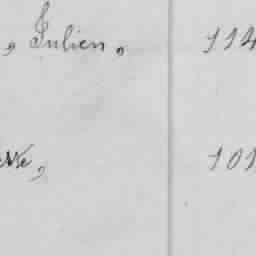 , Julien, 114
101